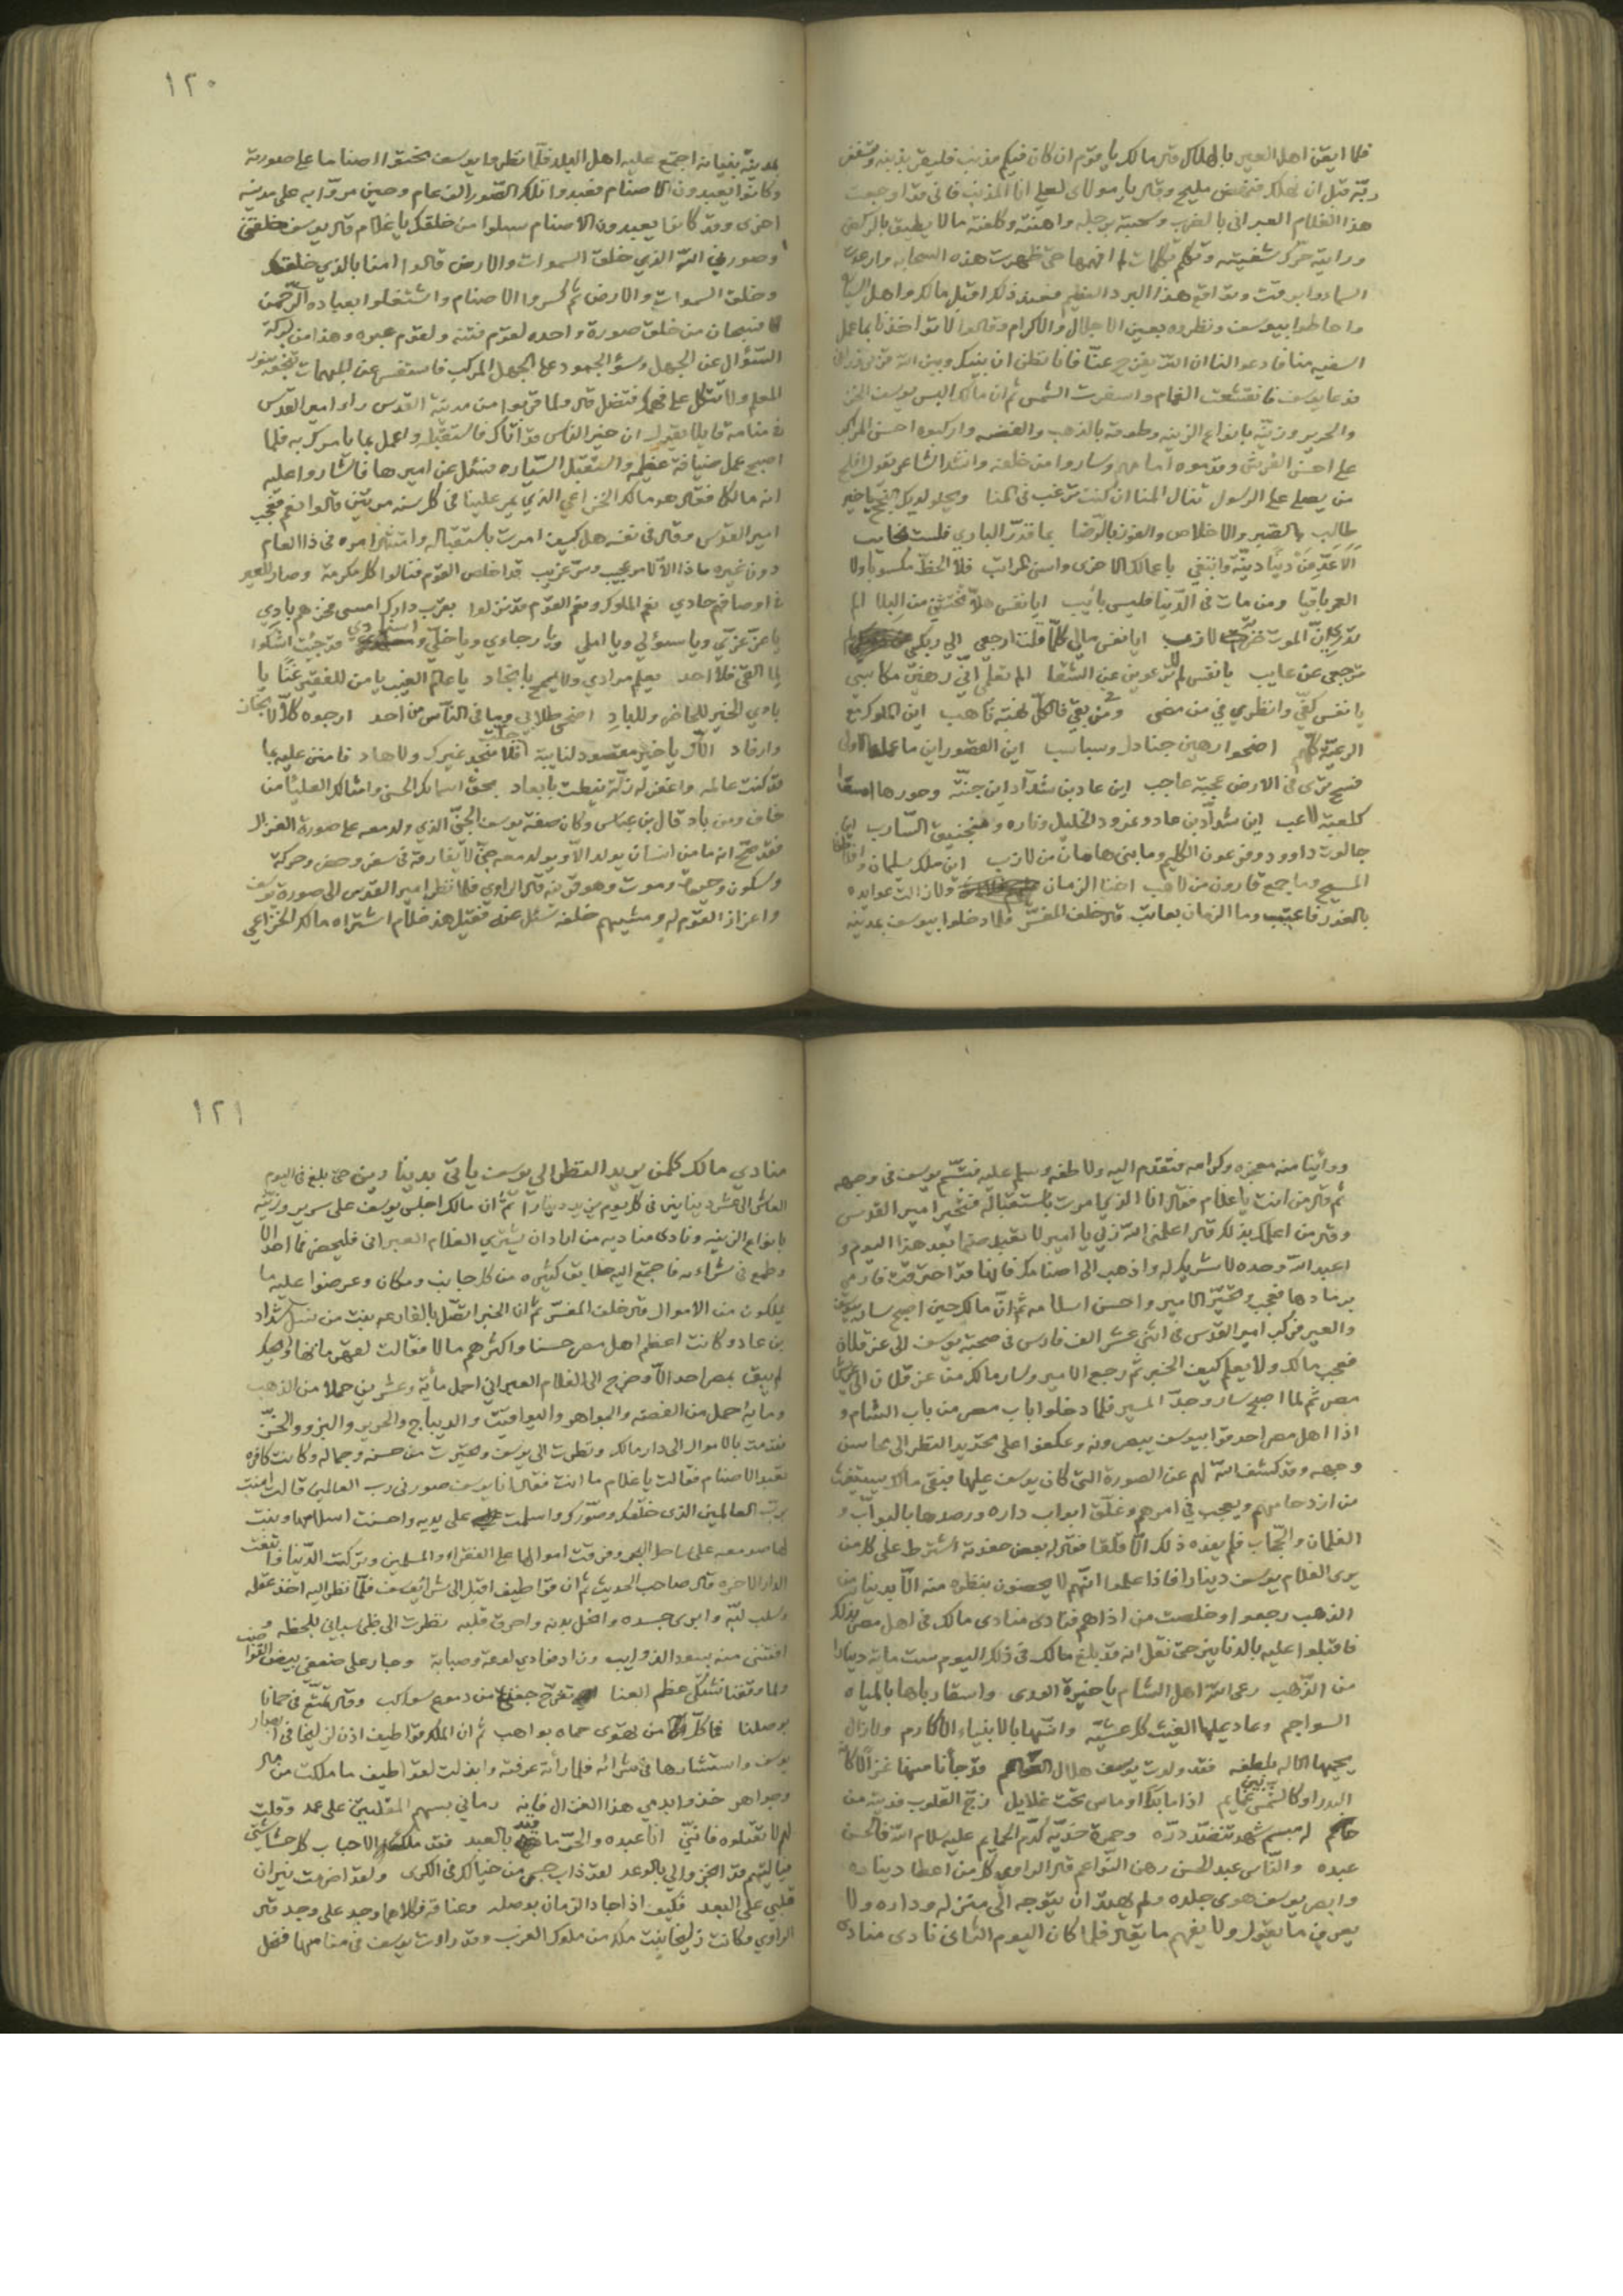 فلما ايقن اهل العير بالهلاك قال مالك يا قوم ان كان فيكم مذنب فليقر بذنبه ويستغفر
ربه قبل ان نهلك فنهض مليح وقال يا مولاى لعلي انا المذنب فاني قد اوجعت
هذا الغلام العبراني بالضرب وسحبته برجله واهنته وكلفته مالا يطيق بالركض
ورايته حرك شفيته وتكلم بكلمات لم افهمها حتى ظهرت هذه السحابه وارعدت
السما وابرقت ووقع هذا البرد العظيم فعند ذلك اقبل مالك واهل
واحاطوا بيوسف ونظروه بعين الاجلال والاكرام وقالوا لا تؤاخذنا بما عمل
السفيه منا فادعوا لنا ان الله يفرج عنا فانا نظن ان بينك وبين الله
فدعا يوسف فانقشعت الغمام واسفرت الشمس ثم ان مالك البس يوسف الخز
والحرير وزينه بانواع الزينه وطوقه بالذهب والفضه واركبوه احسن المراكب
على احسن الفرش وقدموه امامهم وساروا من خلفه وانشد الشاعر يقول
من يصلي على الرسول تنال المنا ان كنت ترغب في المنا
طالب بالصبر والاخلاص والفوز بالرضا بما قدر الباري فلست
دنيا دنيه وابتغي باعمالك الاخرى واسنى المراتب فلا الحظ مكسوبا ولا
العمر باقيا ومن مات في الدنيا فليس بآيب ايا نفس هلا تخشين من البلا الم
تدري ان الموت ضربة لازب ايا نفس مالي كلما قلت ارجعي الي ربكي
ترجعي عن عايب يا نفس لم لا ترعوين عن الشقا الم تعلمي اني رهين مكاسبي
يا نفس كفي وانظري في من مضى ومن بقي فالكل نهبة ناهب اين الملوك مع
الرعية كلهم اضحوا رهين جنادل وسباسب اين القصور اين ما
فسيح ترى في الارض عجبة عاجب اين عاد بن شداد اين جنته وحورها
كلعبة لاعب اين شداد بن عاد ونمرود الخليل وناره ومنجنيق السارب اين
جالوت داوود وفرعون الكليم وما بنى هامان من لازب اين ملك سليمان
المسيح وما جمع قارون من ذاهب اخنا الزمان ولا زالت عوايده
بالغدر فاعجب وما الزمان بعاتب قال خلف المفسر فلما دخلوا بيوسف بمدينه
١٢٠
بمدينة بنيانه اجتمع عليه اهل البلد فلما نظروا يوسف نحتوا اصناما على صورته
وكانوا يعبدون الاصنام فعبدوا تلك الصور الف عام وحين مروا به على مدينه
اخرى وقد كانوا يعبدون الاصنام سئلوا من خلقك يا غلام قال يوسف خلقني
وصورني الله الذي خلق السموات والارض قالوا امنا بالذي خلقك
وخلق السموات والارض ثم كسروا الاصنام واشتغلوا بعبادة الرحمن
فسبحان من خلق صورة واحده لقوم فتنه ولقوم عبره وهذا من بركة
السؤال عن الجهل وسؤ الجمود على الجهل المركب فاستفسر عن المهمات
المعلم ولا تتكل على فهمك فتضل قال ولما قربوا من مدينة القدس راو امير القدس
في منامه قايلا يقول ان خير الناس قد اتاك فاستقبله واعمل بما يامرك به فلما
اصبح عمل ضيافة عظيمه واستقبل السياره فسئل عن اميرها فاشاروا عليه
انه مالك فقال هو مالك الخزاعي الذي يمر علينا في كل سنه مرتين قالوا نعم فتعجب
امير القدس وقال في نفسه هل كيف امرت باستقباله وامتثل امره في ذا العام
دون غيره ما ذا الا لامر عجيب وسر غريب
في اوصافهم حادي نعم الملوك ونعم القوم قد نزلوا بقرب دارك امسى عزهم بادي
يا عز عزتي ويا سؤلي ويا املي ويا رجاءي ويا خلي و استنادي قد جئت اشكوا
لما القى فلا احد يعلم مرادي ولا يسمح بانجاد يا عالم الغيب يا من للفقير غنا يا
بادي الخير للحاضر وللبادِ اضحى طلابي وما في الناس من احد ارجوه كلا لا
وارفاد الاك يا خير مقصود لنايبة فلا منجد غيرك ولا هاد فامنن عليه بما
قد كنت عالمه واغفر له زلة نيطت بابعاد بحق اسمائك الحسنى وامثالك العليا من
خاف ومن باد قال بن عباس وكان صفة يوسف الجني الذي ولد معه على صورة الغزال
فقد صح انه ما من انسان يولد الا ويولد معه جني لا يفارقه في سفر وحضر وحركة
وسكون وحيوة وموت وهو قرينه قال الراوي فلما نظر امير القدس الى صورة يوسف
واعزاز القوم له ومشيهم خلفه سئل عنه فقيل هذا غلام اشتراه مالك الخزاعي
وراينا منه معجزه وكرامه فتقدم اليه ولاطفه وسلم عليه فتبسم يوسف في وجهه
ثم قال من انت يا غلام فقال انا الذي امرت باستقباله فتحير امير القدس
وقال من اعلمك بذلك قال اعلمني الله ربي يا امير لا تعبد صنما بعد هذا اليوم و
اعبد الله وحده لا شريك له واذهب الى اصنامك فانها قد احترقت فارمي
برمادها فعجب وتحير الامير واحسن اسلامه ثم ان مالك حين اصبح سار بيوسف
والعير فركب امير القدس في اثني عشر الف فارس في صحبة يوسف الى عزقلان
فعجب مالك ولا يعلم كيف الخبر ثم رجع الامير وسار مالك من عزقلان الى
مصر ثم لما اصبح سار وجد المسير فلما دخلوا باب مصر من باب الشام و
اذا اهل مصر احدقوا بيوسف يبصرونه وعكفوا على تحديد النظر الى محاسن
وجهه وقد كشف الله لهم عن الصورة التي كان يوسف عليها فبقى مالك يستغيث
من ازدحامهم ويعجب في امرهم وغلق ابواب داره ورصدها بالبواب و
الغلمان والحجاب فلم يفده ذلك الا قلقا فقال له بعض حفدته اشترط على كل من
يرى الغلام يوسف دينارا فاذا علموا انهم لا يحضون بنظره منه الا بدينار من
الذهب رجعوا وخلصت من اذاهم فنادى منادى مالك في اهل مصر بذلك
فاقبلوا عليه بالدنانير حتى نقل انه قد بلغ مالك في ذلك اليوم ست مائة دينارا
من الذهب رعى الله اهل الشام يا خيرة الورى واسقا رباها بالمياه
السواجم وعاد عليها الغيث كل عشية وانبتها بالانبياء الاكارم ولا زال
يحييها الاله بلطفه فقد ولدت يوسف هلال قد جأنا منها غزالا كانه
البدر او كالشمس بين غمايم اذا ما بدا او ماس تحت غلايل زج القلوب فديته من
حاكم له مبسم شهد تنضد دره وحمرة خديه كدم الحمايم عليه سلام الله فالحسن
عبده والناس عبد الحسن رهن النواعم قال الراوي كل من اعطا ديناره
وابصر يوسف هوى جلده ولم يهتد ان يتوجه الى منزله وداره ولا
يعرف ما يقول ولا يفهم ما يقال فلما كان اليوم الثاني نادى منادى
١٢١
منادي مالك كلمن يريد النظر الى يوسف ياتي بدينارين حتى بلغ في اليوم
العاشر الى عشر دينانير في كل يوم يزيد دينارا ثم ان مالك اجلس يوسف على سرير وزينه
بانواع الزينه ونادى مناديه من اراد ان يشتري الغلام العبراني فليحضر فما احد الا
وطمع في شراءه فاجتمع اليه خلايق كثيره من كل جانب ومكان وعرضوا عليه ما
يملكون من الاموال قال خلف المفسر ثم ان الخبر اتصل بالفارعه بنت من نسل شداد
بن عاد وكانت اعظم اهل مصر حسنا واكثرهم مالا فقالت لقهرمانها ويلك
لم يبق بمصر احد الا وخرج الى الغلام العبراني احمل مائة وعشرين حملا من الذهب
وماية احمل من الفضه والجواهر واليواقيت والديباج والحرير والبز والخز
فقدمت بالاموال الى دار مالك ونظرت الى يوسف وتحيرت من حسنه وجماله وكانت كافره
تعبد الاصنام فقالت يا غلام ما انت فقال انا يوسف صورني رب العالمين قالت امنت
برب العالمين الذي خلقك وصورك واسلمت على يديه واحسنت اسلامها وبنت
لها صومعه على ساحل البحر وفرقت اموالها على الفقراء والمسلمين وتركت الدنيا وابتغت
الدار الاخره قال صاحب الحديث ثم ان قواطيف اقبل الى شرا يوسف فلما نظر اليه اخذ عقله
وسلب لبه وابرى جسده وانحل بدنه واحرق قلبه نظرت الى ظبي سباني بلحظه و
افتنني منه بسود الذوايب وزاد فؤادي لوعة وصبابة وجار على ضعفي ببيض
ولما وقفنا نشتكي عظم العنا تقرح جفني من دموع سواكب وقال تمتع في حمانا
بوصلنا فما كل من يهوى حماه بواهب ثم ان الملك قواطيف اذن لزليخا في ابصار
يوسف واستشارها في شرائه فلما رأته عرفته وابذلت لقواطيف ما ملكت من مال
وجواهر خذوا بدمي هذا الغزال فانه رماني بسهم المقلتين على عمد وقلت
لهم لا تقتلوه فانني انا عبده والحر ما قيد بالعبد
فيا ليتهم قد انجزوا لي بالوعد لقد ذاب جسمي من خيالك في الكرى ولقد اضرمت نيران
قلبي على البعد فكيف اذا جاد الزمان بوصله وعناقه فكلاهما وجد على وجد قال
الراوي وكانت زليخا بنت ملك من ملوك الغرب وقد راوت يوسف في منامها فنحل